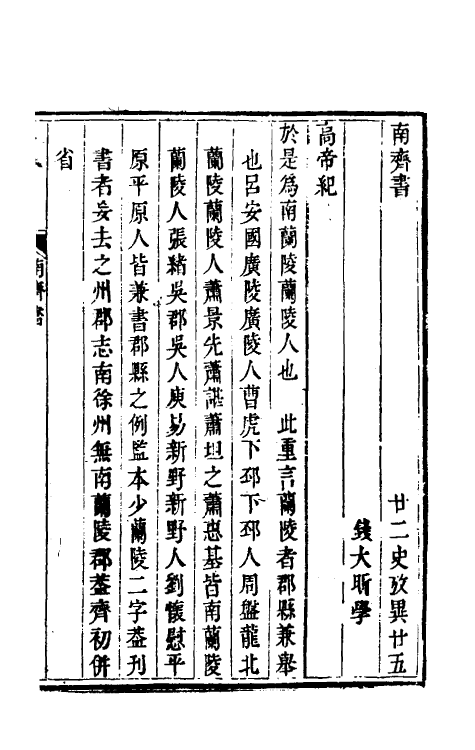 南齊書　廿二史攷異廿五
錢大昕學
高帝紀
於是爲南蘭陵蘭陵人也　此重言蘭陵者郡縣兼舉
也呂安國廣陵廣陵人曹虎下邳下邳人周盤龍北
蘭陵蘭陵人蕭景先蕭諶蕭坦之蕭惠基皆南蘭陵
蘭陵人張緒吳郡吳人庾易新野新野人劉懷慰平
原平原人皆兼書郡縣之例監本少蘭陵二字葢刊
書者妄去之州郡志南徐州無南蘭陵郡葢齊初併
省
南齊書